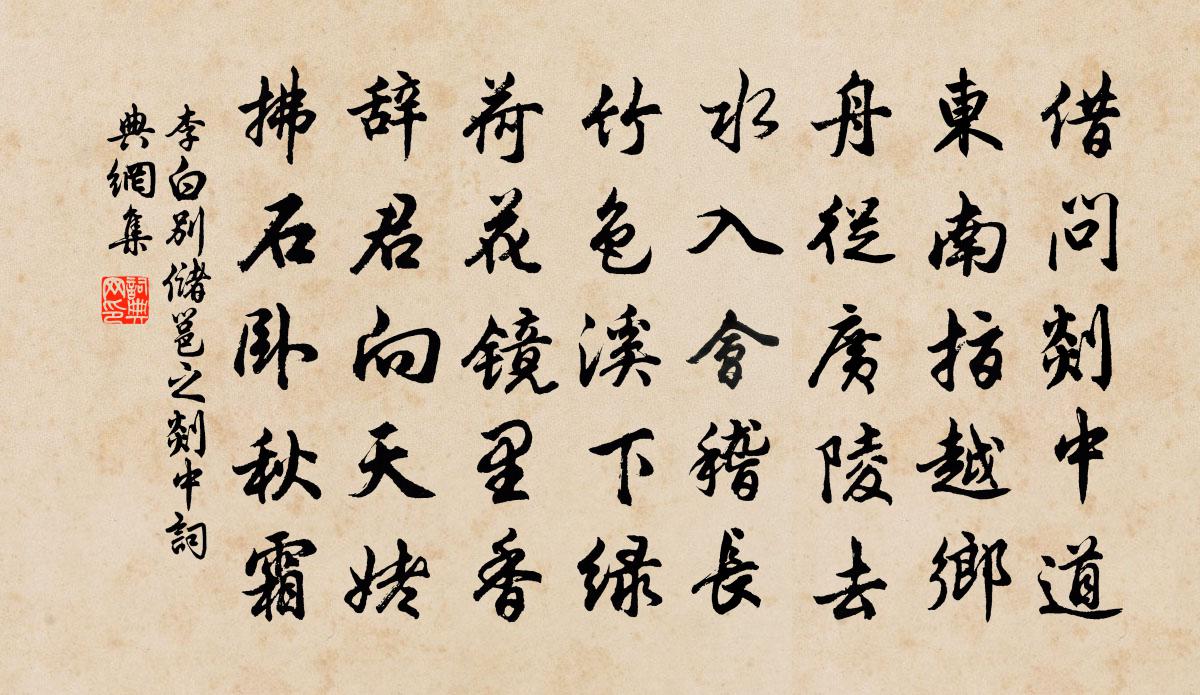 借問剡中道
東南指越鄉
舟從廣陵去
水入會稽長
竹色溪下綠
荷花鏡里香
辭君向天姥
拂石臥秋霜
李白別儲邕之剡中詞
典網集
詞典網印